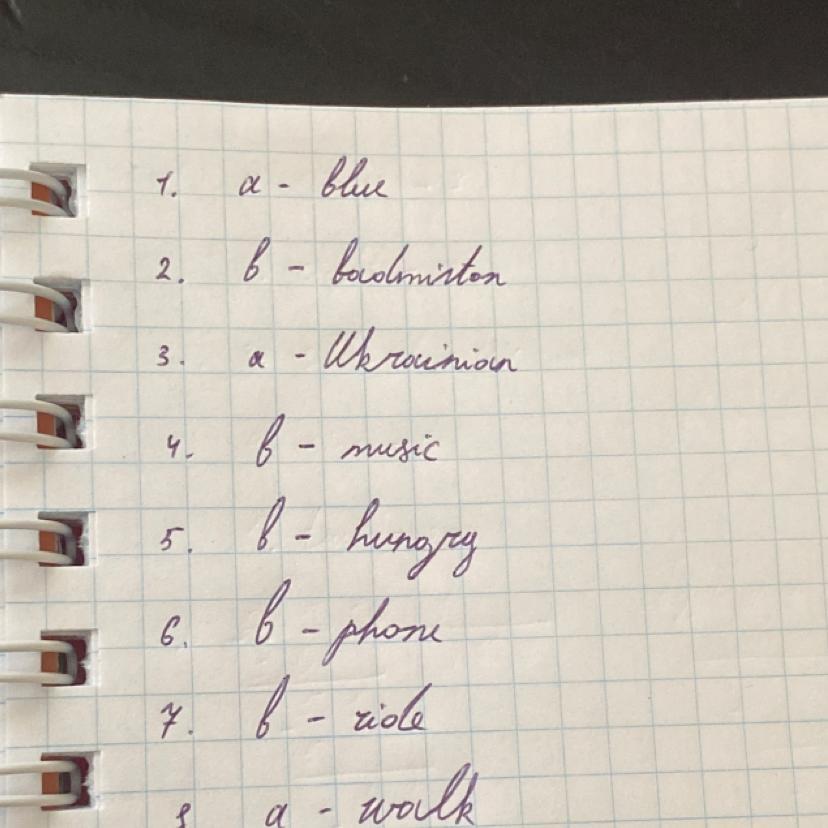 1. a - blue
2. b - badminton
3. a - Ukrainian
4. b - music
5. b - hungry
6. b - phone
7. b - ride
8 a - walk